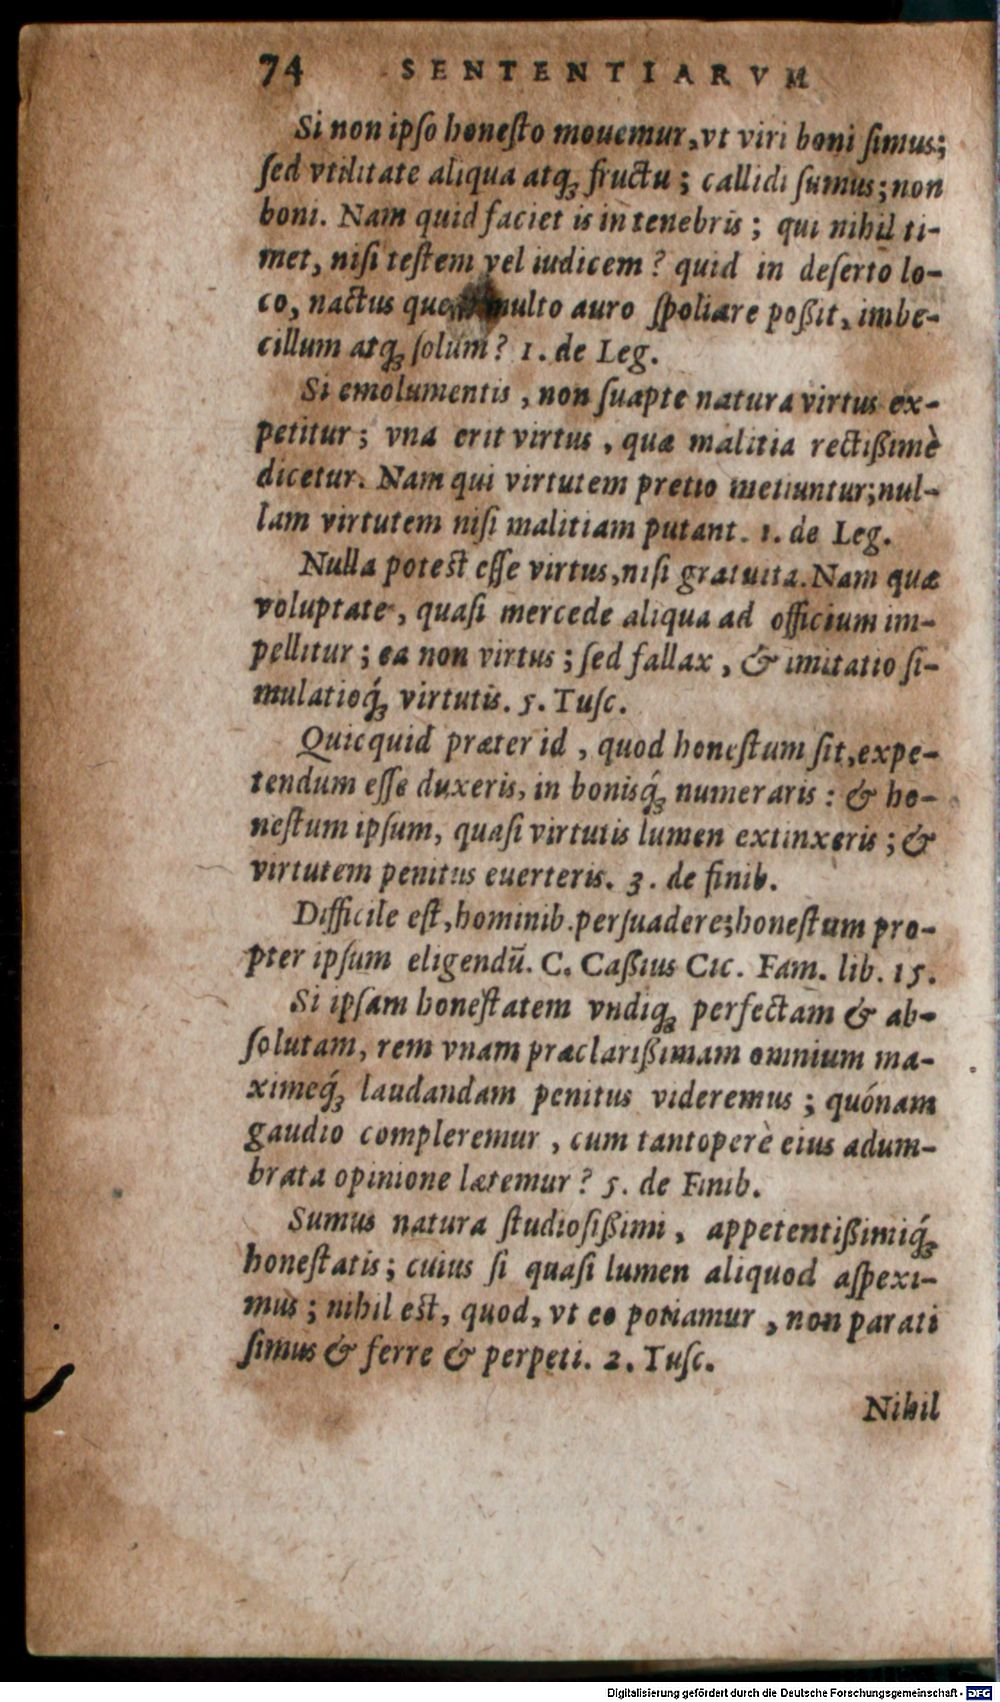 74 SENTENTIARVM
Si non ipſo honeſto mouemur, vt viri boni ſimus;
ſed vtilitate aliqua atq; fructu; callidi ſumus; non
boni. Nam quid faciet is in tenebris; qui nihil ti-
met, niſi teſtem vel iudicem? quid in deſerto lo-
co, nactus multo auro ſpoliare poßit, imbe-
cillum atq; ſolum? 1. de Leg.
Si emolumentis, non ſuapte natura virtus ex-
petitur; vna erit virtus, quæ malitia rectißimè
dicetur. Nam qui virtutem pretio metiuntur; nul-
lam virtutem niſi malitiam putant. 1. de Leg.
Nulla potest eſſe virtus, niſi gratuita. Nam quæ
voluptate, quaſi mercede aliqua ad officium im-
pellitur; ea non virtus; ſed fallax, & imitatio ſi-
mulatioq́; virtutis. 5. Tuſc.
Quicquid præter id, quod honeſtum ſit, expe-
tendum eſſe duxeris, in bonisq́; numeraris: & ho-
neſtum ipſum, quaſi virtutis lumen extinxeris; &
virtutem penitus euerteris. 3. de finib.
Difficile eſt, hominib. perſuadere; honeſtum pro-
pter ipſum eligendū. C. Caßius Cic. Fam. lib. 15.
Si ipſam honeſtatem vndiq; perfectam & ab-
ſolutam, rem vnam præclarißimam omnium ma-
ximeq́; laudandam penitus videremus; quónam
gaudio compleremur, cum tantoperè eius adum-
brata opinione lætemur? 5. de Finib.
Sumus natura ſtudioſißimi, appetentißimiq́;
honeſtatis; cuius ſi quaſi lumen aliquod aſpexi-
mus; nihil est, quod, vt eo potiamur, non parati
ſimus & ferre & perpeti. 2. Tuſc.
Nihil
Digitalisierung gefördert durch die Deutsche Forschungsgemeinschaft - DFG